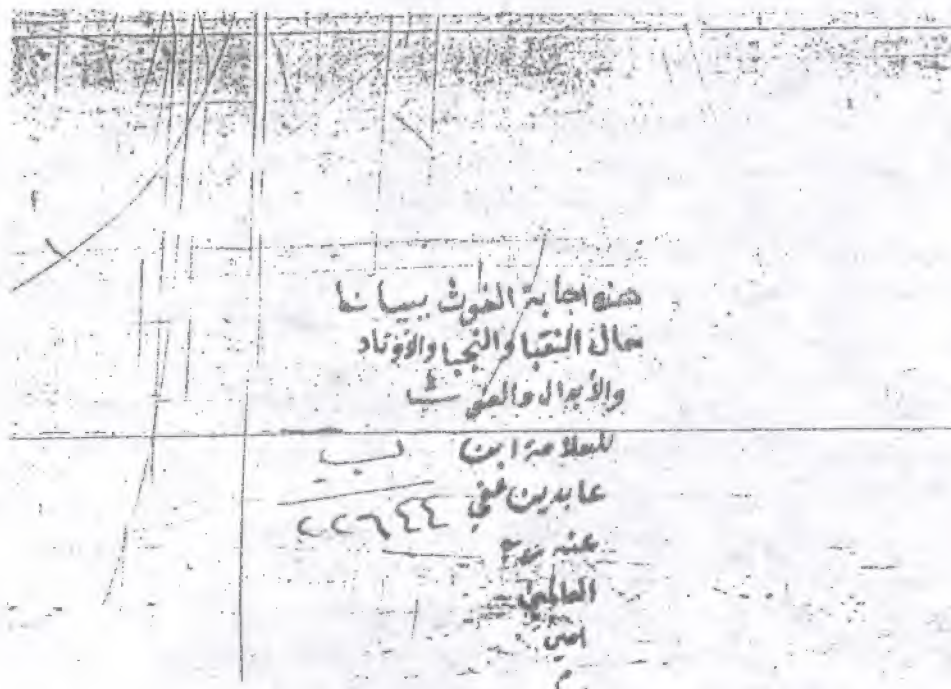 هذه اجابة الغوث ببيان
حال النقبا والنجبا والأوتاد
والأبدال والغوث
للعلامة ابن
عابدين عفي
عنه
العالمين
امين
ب
٢٢٦٤٤